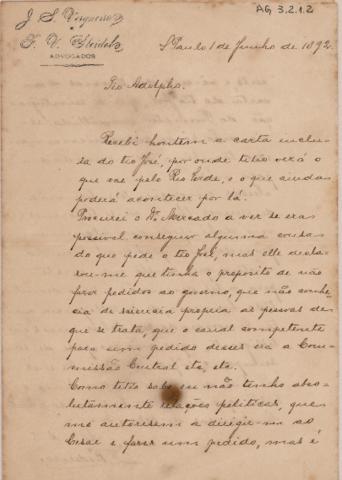 AG 3.2.1.2
J. S. Vergueiro
F. V. Steidel
ADVOGADOS
S. Paulo 1 de Junho de 1892
Tio Adolpho.
Recebi hontem a carta inclu-
sa do tio José, por onde titio verá o
que vae pelo Rio Verde, e o que ainda
poderá acontecer por lá.
Procurei o Dr. Mercado a ver se era
possivel conseguir alguma cousa
do que pede o tio José, mas elle decla-
rou-me que tinha o proposito de não
fazer pedidos ao governo, que não conhe-
cia de sciencia propria as pessoas de
que se trata, que o canal competente
para um pedido desses era a Com-
missão Central etc, etc.
Como titio sabe eu não tenho abso-
lutamente relações politicas, que
me autorisem a dirigir-me ao
Cesar e fazer um pedido, mas é